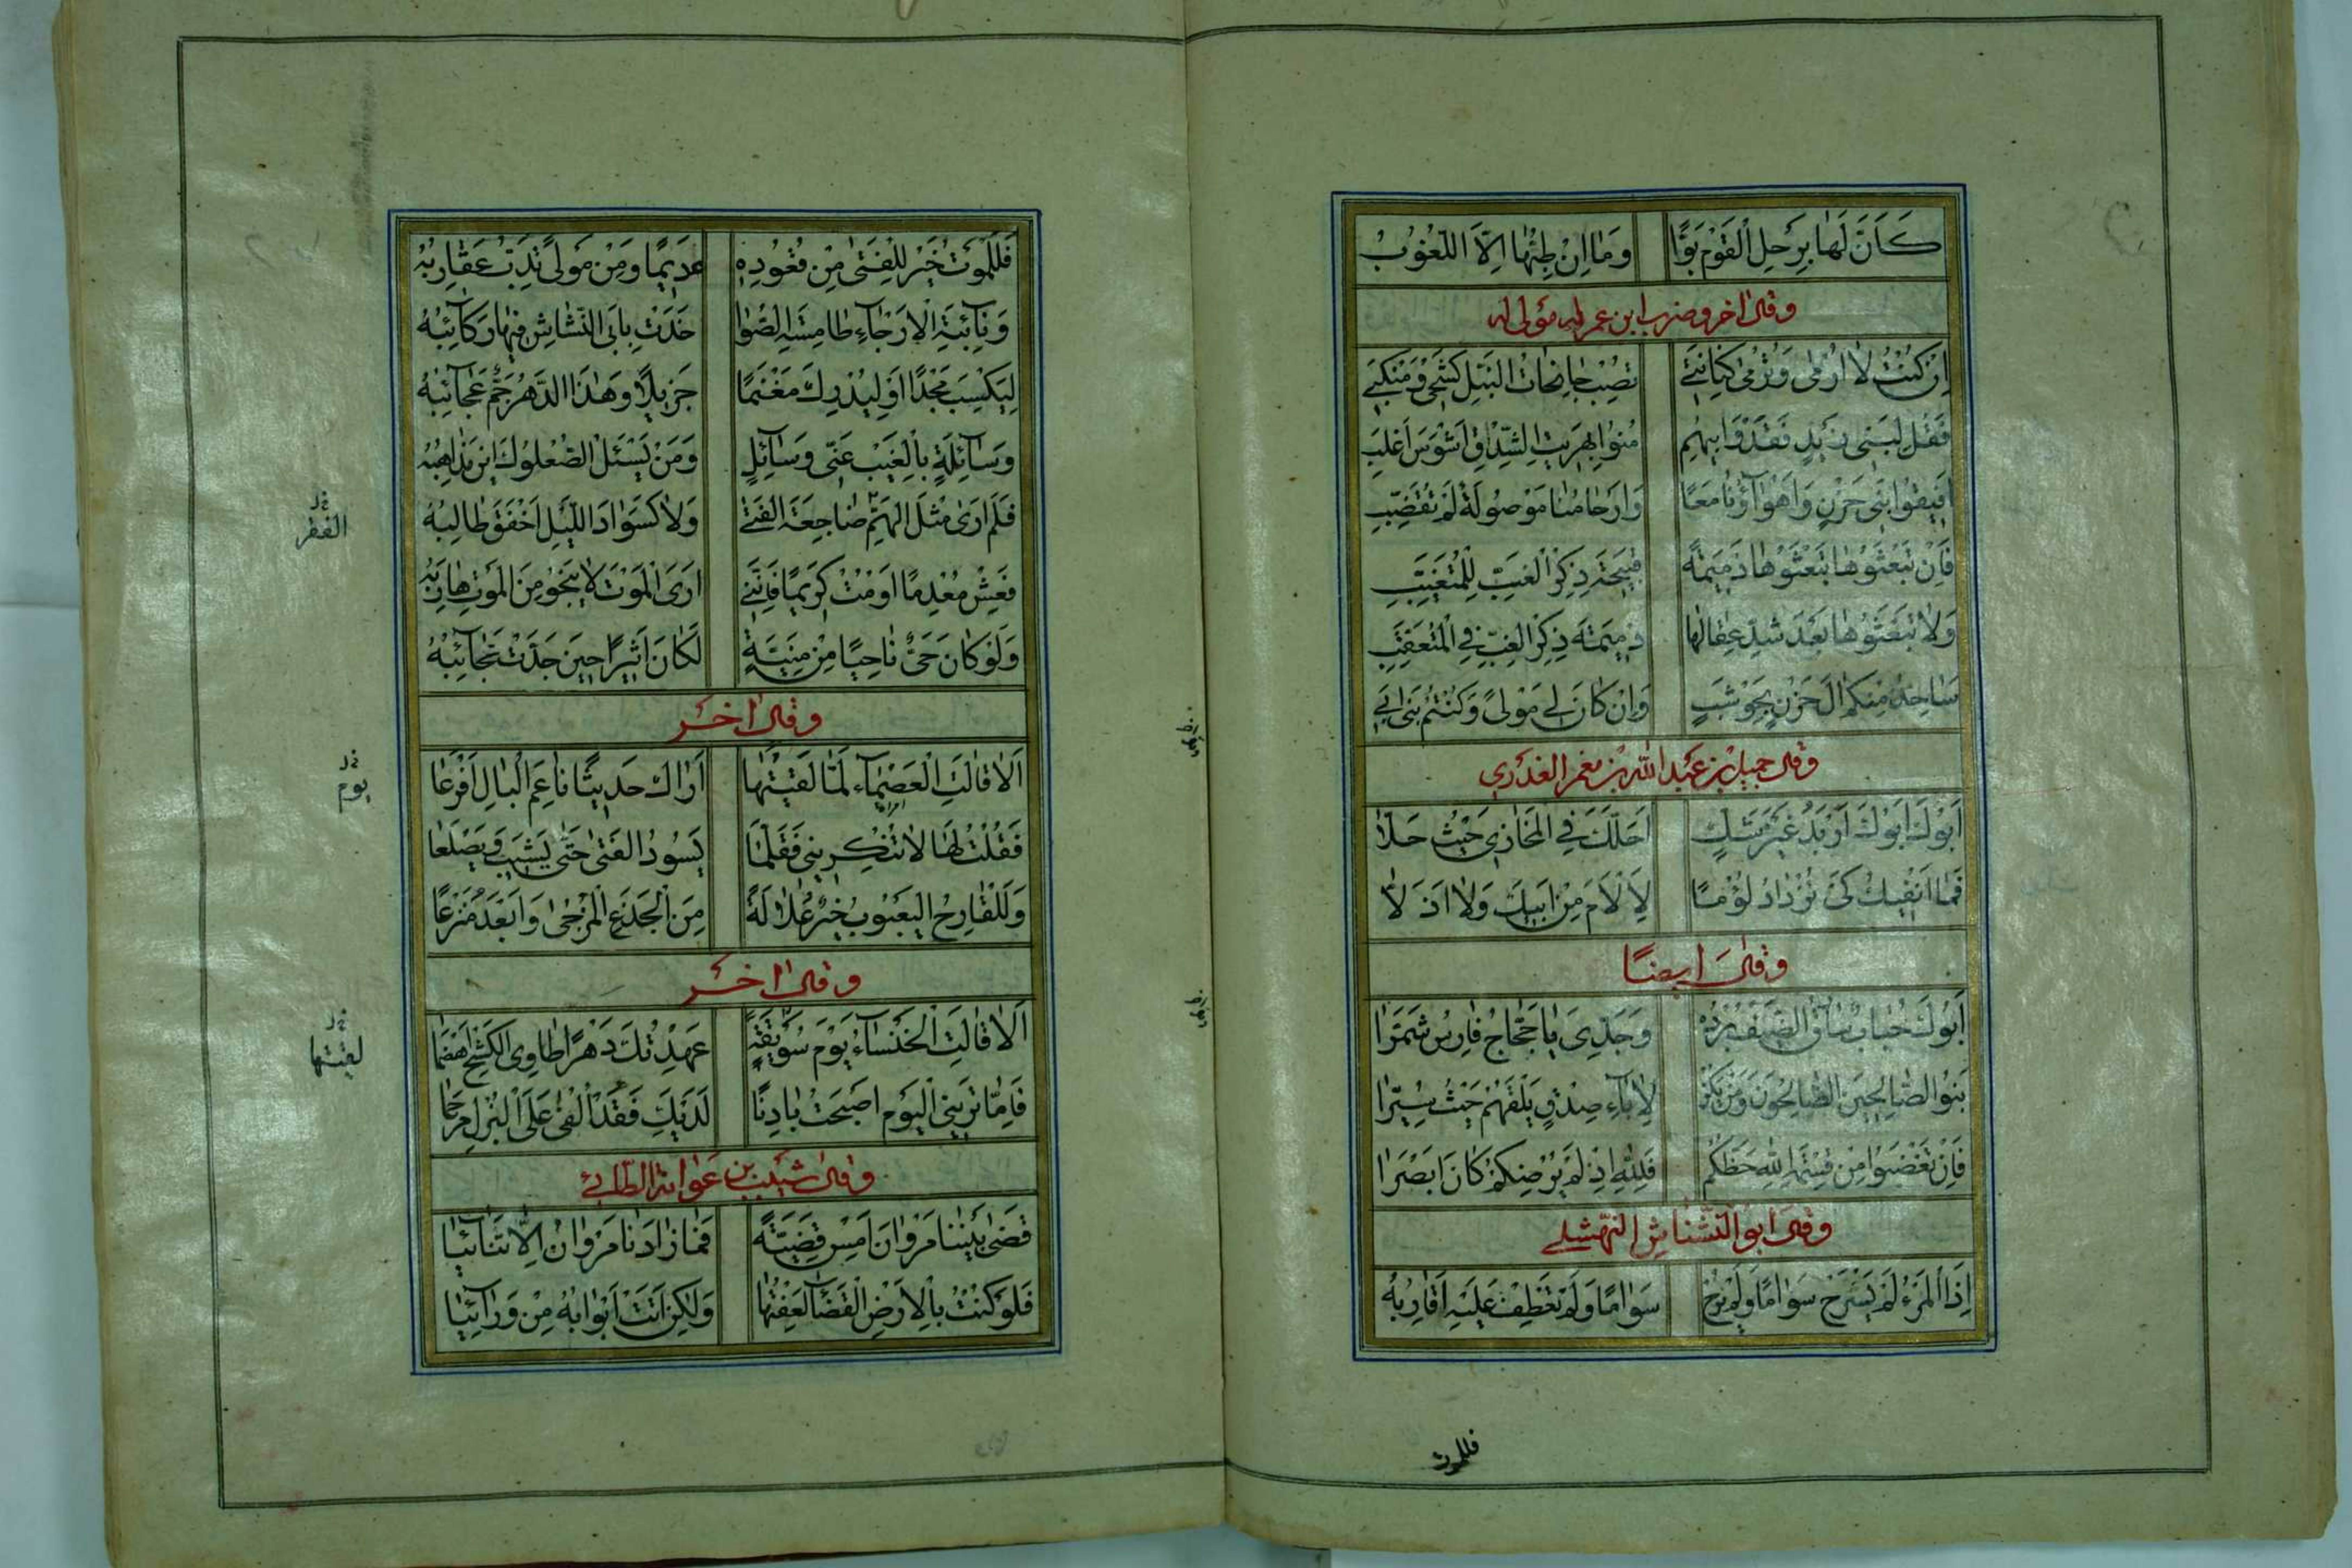 كَاَنَّ لَها بِرَحلِ الْقَوْمِ بَوًّا وَمٰا اِنْ طِبُّهٰا اِلاَّ اللُّغُوْبُ
وقال اخر وضرب ابن عم له مولى له
اِنْ كُنْتُ لاٰ اُرْمٰى وَتُرْمٰى كِنٰانَتِى تُصِبْ جٰانِحٰاتُ النَّبْلِ كَشْحِى وَمَنْكِبِى
فَقُلْ لِبَنِى زَيْدٍ فَقَدْ وَاَبِيْهِمِ مُنُوا بِهَرِيْتِ الشِّدْقِ اَشْوَسَ اَغْلَبِ
اَفِيْقُوا بَنِى حَزْنٍ وَاَهْوٰآؤُنٰا مَعًا وَاَرْحٰامُنٰا مَوْصُوْلَةٌ لَمْ تُقَضَّبِ
فَاِنْ تَبْعَثُوْهٰا تَبْعَثُوْهٰا ذَمِيْمَةً قَبِيْحَةَ ذِكْرِ الْغِبِّ لِلْمُتَغَبِّبِ
وَلاٰ تَبْعَثُوْهٰا بَعْدَ شَدِّ عِقٰالِهٰا ذَمِيْمَةَ ذِكْرِ الْغِبِّ فِى الْمُتَعَقَّبِ
سَاٰخُذُ مِنْكُمْ اٰلَ حَزْنٍ بِحَوْشَبٍ وَاِنْ كٰانَ لِى مَوْلىً وَكُنْتُمْ بَنِى اَبِى
وقال جميل بن عبد الله بن معمر العذرى
اَبُوْكَ اَبُوْكَ اَرْبَدُ غَيْرَ شَكٍّ اَحَلَّكَ فِى الْمَخٰازِى حَيْثُ حَلاّٰ
فَمٰا اَنْفِيْكَ كَىْ تَزْدٰادَ لُؤْمًا لِاَلْاَمَ مِنْ اَبِيْكَ وَلاٰ اَذَلاّٰ
وقال ايضاً
اَبُوْكَ حُبٰابٌ سٰارِقُ الضَّيْفِ بُرْدَهُ وَجَدِّى يٰا حَجّٰاجُ فٰارِسُ شَمَّرٰا
بَنُوا الصّٰالِحِيْنَ الصّٰالِحُوْنَ وَمَنْ يَكُنْ لِاٰبٰآءِ صِدْقٍ يَلْقَهُمْ حَيْثُ سَيَّرٰا
فَاِنْ تَغْضَبُوا مِنْ قِسْمَةِ اللّٰهِ حَظَّكُمْ فَلِلّٰهِ اِذْ لَمْ يُرْضِكُمْ كٰانَ اَبْصَرٰا
وقال ابو النشناش النهشلى
اِذَا الْمَرْءُ لَمْ يَسْرَحْ سَوٰامًا وَلَمْ يُرِحْ سَوٰامًا وَلَمْ تَعْطِفْ عَلَيْهِ اَقٰارِبُهُ
فللموت
فَلَلْمَوْتُ خَيْرٌ لِلْفَتٰى مِنْ قُعُوْدِهِ عَدِيْمًا وَمِنْ مَوْلىً تَدِبُّ عَقٰارِبُهُ
وَنٰآئِيَةِ الْاَرْجٰآءِ طٰامِسَةِ الصُّوٰى خَدَتْ بِاَبِى النَّشْنٰاشِ فِيْهٰا رَكٰآئِبُهُ
لِيَكْسِبَ مَجْدًا اَوْ لِيُدْرِكَ مَغْنَمًا جَزِيْلًا وَهٰذَا الدَّهْرُ جَمٌّ عَجٰآئِبُهُ
وَسٰآئِلَةٍ بِالْغَيْبِ عَنِّى وَسٰآئِلٍ وَمَنْ يَسْئَلُ الصُّعْلُوْكَ اَيْنَ مَذٰاهِبُهُ
فَلَمْ اَرٰى مِثْلَ الْهَمِّ ضٰاجَعَهُ الْفَتٰى وَلاٰ كَسَوٰادِ اللَّيْلِ اَخْفَقَ طٰالِبُهُ
الفقر
فَعِشْ مُعْدِمًا اَوْ مُتْ كَرِيْمًا فَاِنَّنِى اَرَى الْمَوْتَ لاٰ يَنْجُو مِنَ الْمَوْتِ هٰارِبُهْ
وَلَوْ كٰانَ حَىٌّ نٰاجِيًا مِنْ مَنِيَّةٍ لَكٰانَ اَثِيْرًا حِيْنَ جَدَّتْ نَجٰآئِبُهُ
وقال اخر
اَلاٰ قٰالَتِ الْعَصْمٰآءُ لَمّٰا لَقِيْتُهٰا اَرٰاكَ حَدِيْثًا نٰاعِمَ الْبٰالِ اَفْرَعٰا
يوم
فَقُلْتُ لَهٰا لاٰ تُنْكِرِيْنِى فَقَلَّمٰا يَسُوْدُ الْفَتٰى حَتّٰى يَشِيْبَ وَيَصْلَعٰا
وَلَلْقٰارِحُ الْيَعْبُوْبُ خَيْرٌ عُلاٰلَةً مِنَ الْجَذَعِ الْمُزْجٰى وَاَبْعَدُ مَنْزَعًا
وقال اخر
اَلاٰ قٰالَتِ الْخَنْسٰآءُ يَوْمَ سُوَيْقَةٍ عَهِدْتُكَ دَهْرًا طٰاوِىَ الْكَشْحِ اَهْضَمٰا
لقيتها
فَاِمّٰا تَرَيْنِى الْيَوْمَ اَصْبَحْتُ بٰادِنًا لَدَيْكِ فَقَدْ اُلْفٰى عَلَى الْبُزْلِ مِرْجَمٰا
وقال شبيب بن عوانة الطائى
قَضٰى بَيْنَنٰا مَرْوٰانُ اَمْسِ قَضِيَّةً فَمٰا زٰادَنٰا مَرْوٰانُ اِلاّٰ تَنٰآئِيٰا
فَلَوْ كُنْتُ بِالْاَرْضِ الْفَضٰآءِ لَعِفْتُهٰا وَلٰكِنْ اَتَتْ اَبْوٰابُهُ مِنْ وَرٰآئِيٰا